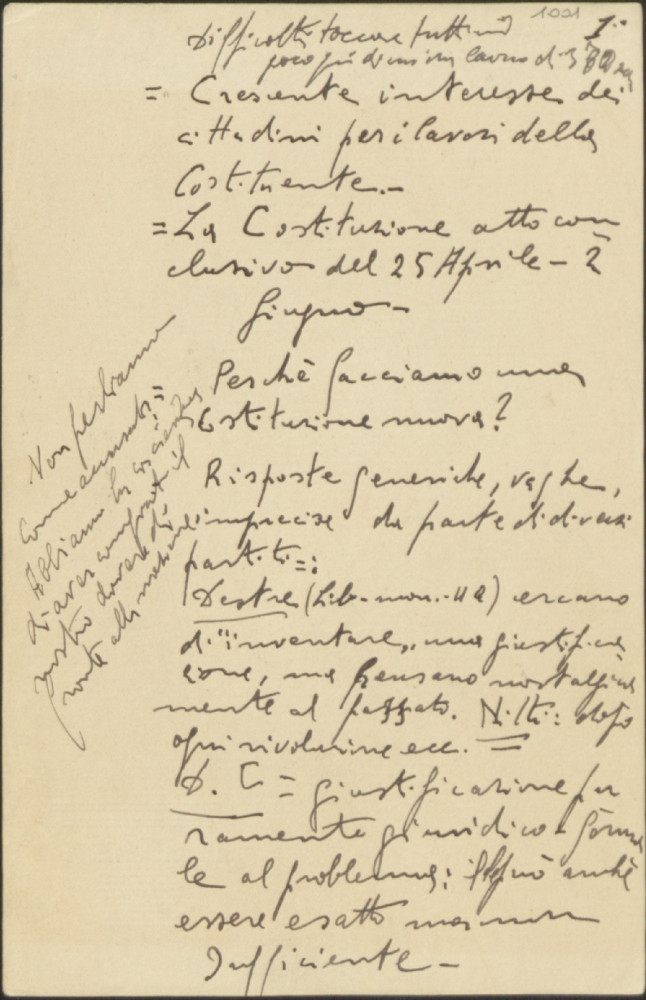 1001
1°
Difficoltà toccare tutti
poco più di un'ora lavoro di 3
= Crescente interesse dei
cittadini per i lavori della
Costituente.-
= La Costituzione atto con
clusivo del 25 Aprile - 2
Giugno -
= Perchè facciamo una
Costituzione nuova?
Risposte generiche, vaghe,
imprecise da parte di diversi
partiti =:
Destre (Lib-mon.-UQ) cercano
di "inventare" una giustifica
zione, ma pensano nostalgica
mente al passato. Nitti: dopo
ogni rivoluzione ecc. =
D. C = giustificazione pu
ramente giuridico - forma
le al problema: può anche
essere esatto ma non
sufficiente -
Non perdiamo
come
Abbiamo la coscienza
di aver compiuto il
nostro dovere di
fronte alla nazione